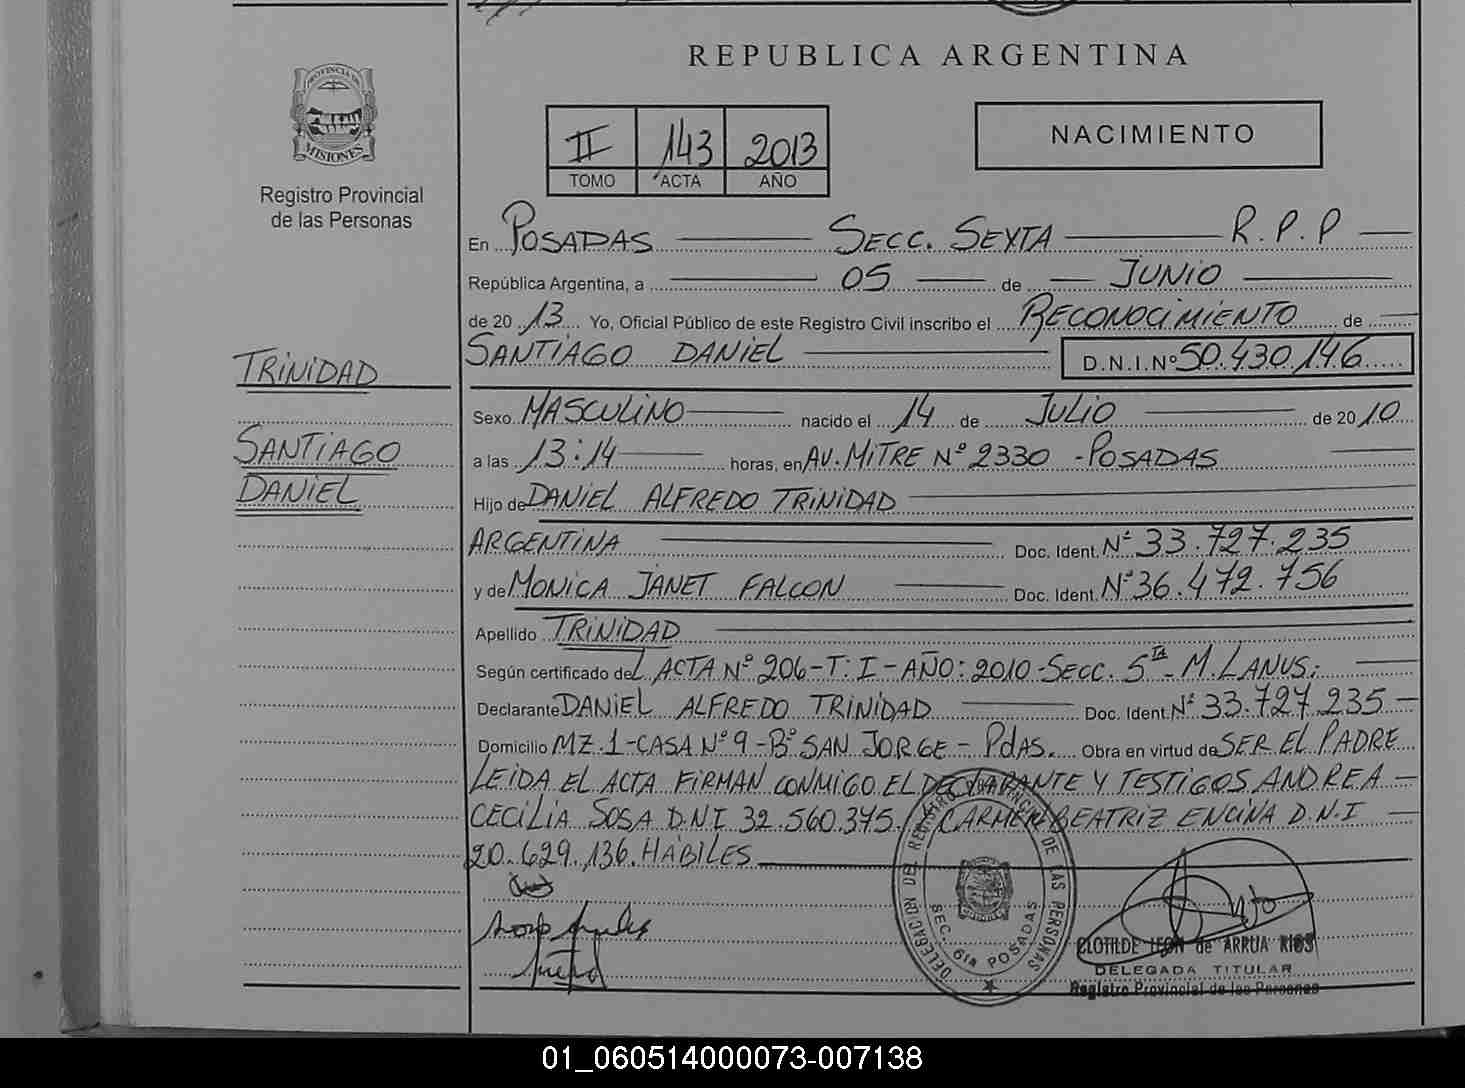 REPUBLICA ARGENTINA
PROVINCIA DE
MISIONES
Registro Provincial
de las Personas
II 143 2013
TOMO ACTA AÑO
NACIMIENTO
En POSADAS SECC. SEXTA R.P.P
República Argentina, a 05 de JUNIO
de 2013 Yo, Oficial Público de este Registro Civil inscribo el RECONOCIMIENTO de
SANTIAGO DANIEL D.N.I.Nº 50.430.146
TRINIDAD
SANTIAGO
DANIEL
Sexo MASCULINO nacido el 14 de JULIO de 2010
a las 13:14 horas, en AV. MITRE Nº 2330 - POSADAS
Hijo de DANIEL ALFREDO TRINIDAD
ARGENTINA Doc. Ident. Nº 33.727.235
y de MONICA JANET FALCON Doc. Ident. Nº 36.472.756
Apellido TRINIDAD
Según certificado del ACTA Nº 206-T: I-AÑO: 2010-SECC. 5TA - M. LANUS:
Declarante DANIEL ALFREDO TRINIDAD Doc. Ident. Nº 33.727.235
Domicilio MZ.1-CASA Nº 9-Bº SAN JORGE - PdAS. Obra en virtud de SER EL PADRE
LEIDA EL ACTA FIRMAN CONMIGO EL DECLARANTE Y TESTIGOS ANDREA
CECILIA SOSA D.N.I 32.560.375. Y CARMEN BEATRIZ ENCINA D.N.I
20.629.136. HABILES
DELEGACION DEL REGISTRO PROVINCIAL DE LAS PERSONAS
SEC. 6ta POSADAS
CLOTILDE LEON de ARRUA RIOS
DELEGADA TITULAR
Registro Provincial de las Personas
01_060514000073-007138